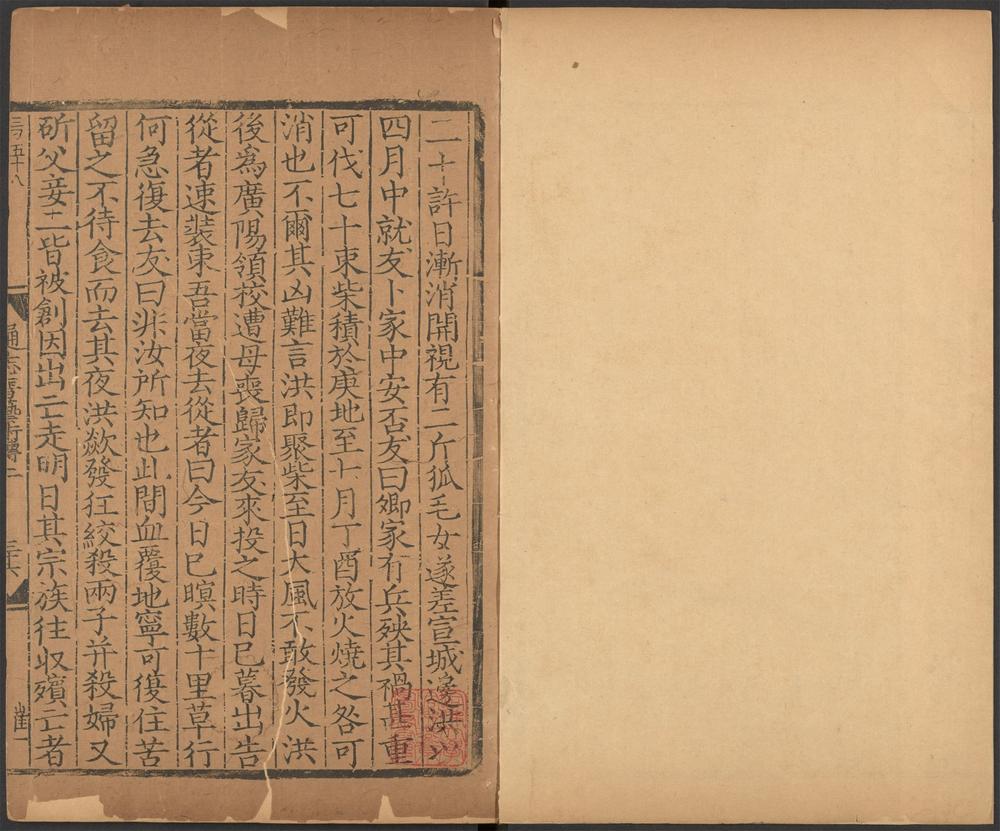 二十許日漸消開視有二斤狐毛女遂差宣城邊洪以
四月中就友卜家中安否友曰卿家有兵殃其禍甚重
可伐七十束柴積於庚地至七月丁酉放火燒之咎可
消也不爾其凶難言洪即聚柴至日大風不敢發火洪
後爲廣陽領校遭母喪歸家友來投之時日巳暮出告
從者速裝束吾當夜去從者曰今日巳暝數十里草行
何急復去友曰非汝所知也此間血覆地寧可復住苦
留之不待食而去其夜洪欻發狂絞殺兩子并殺婦又
斫父妾二皆被創因出亡走明日其宗族往収殯亡者
五十八
通志藝術傳一
三十六
崔